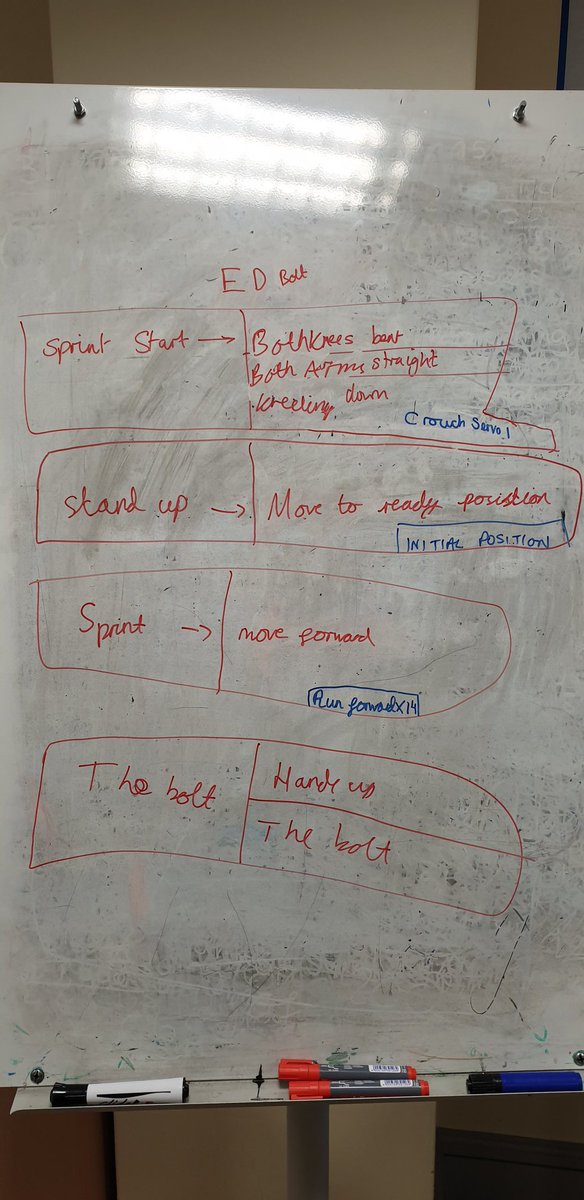 ED Bolt
Sprint Start →
Both knees bent
Both Arms straight
kneeling down
Crouch Servo 1
Stand up →
Move to ready posistion
INITIAL POSITION
Sprint →
move forward
Run forward x14
The bolt
Hands up
The bolt